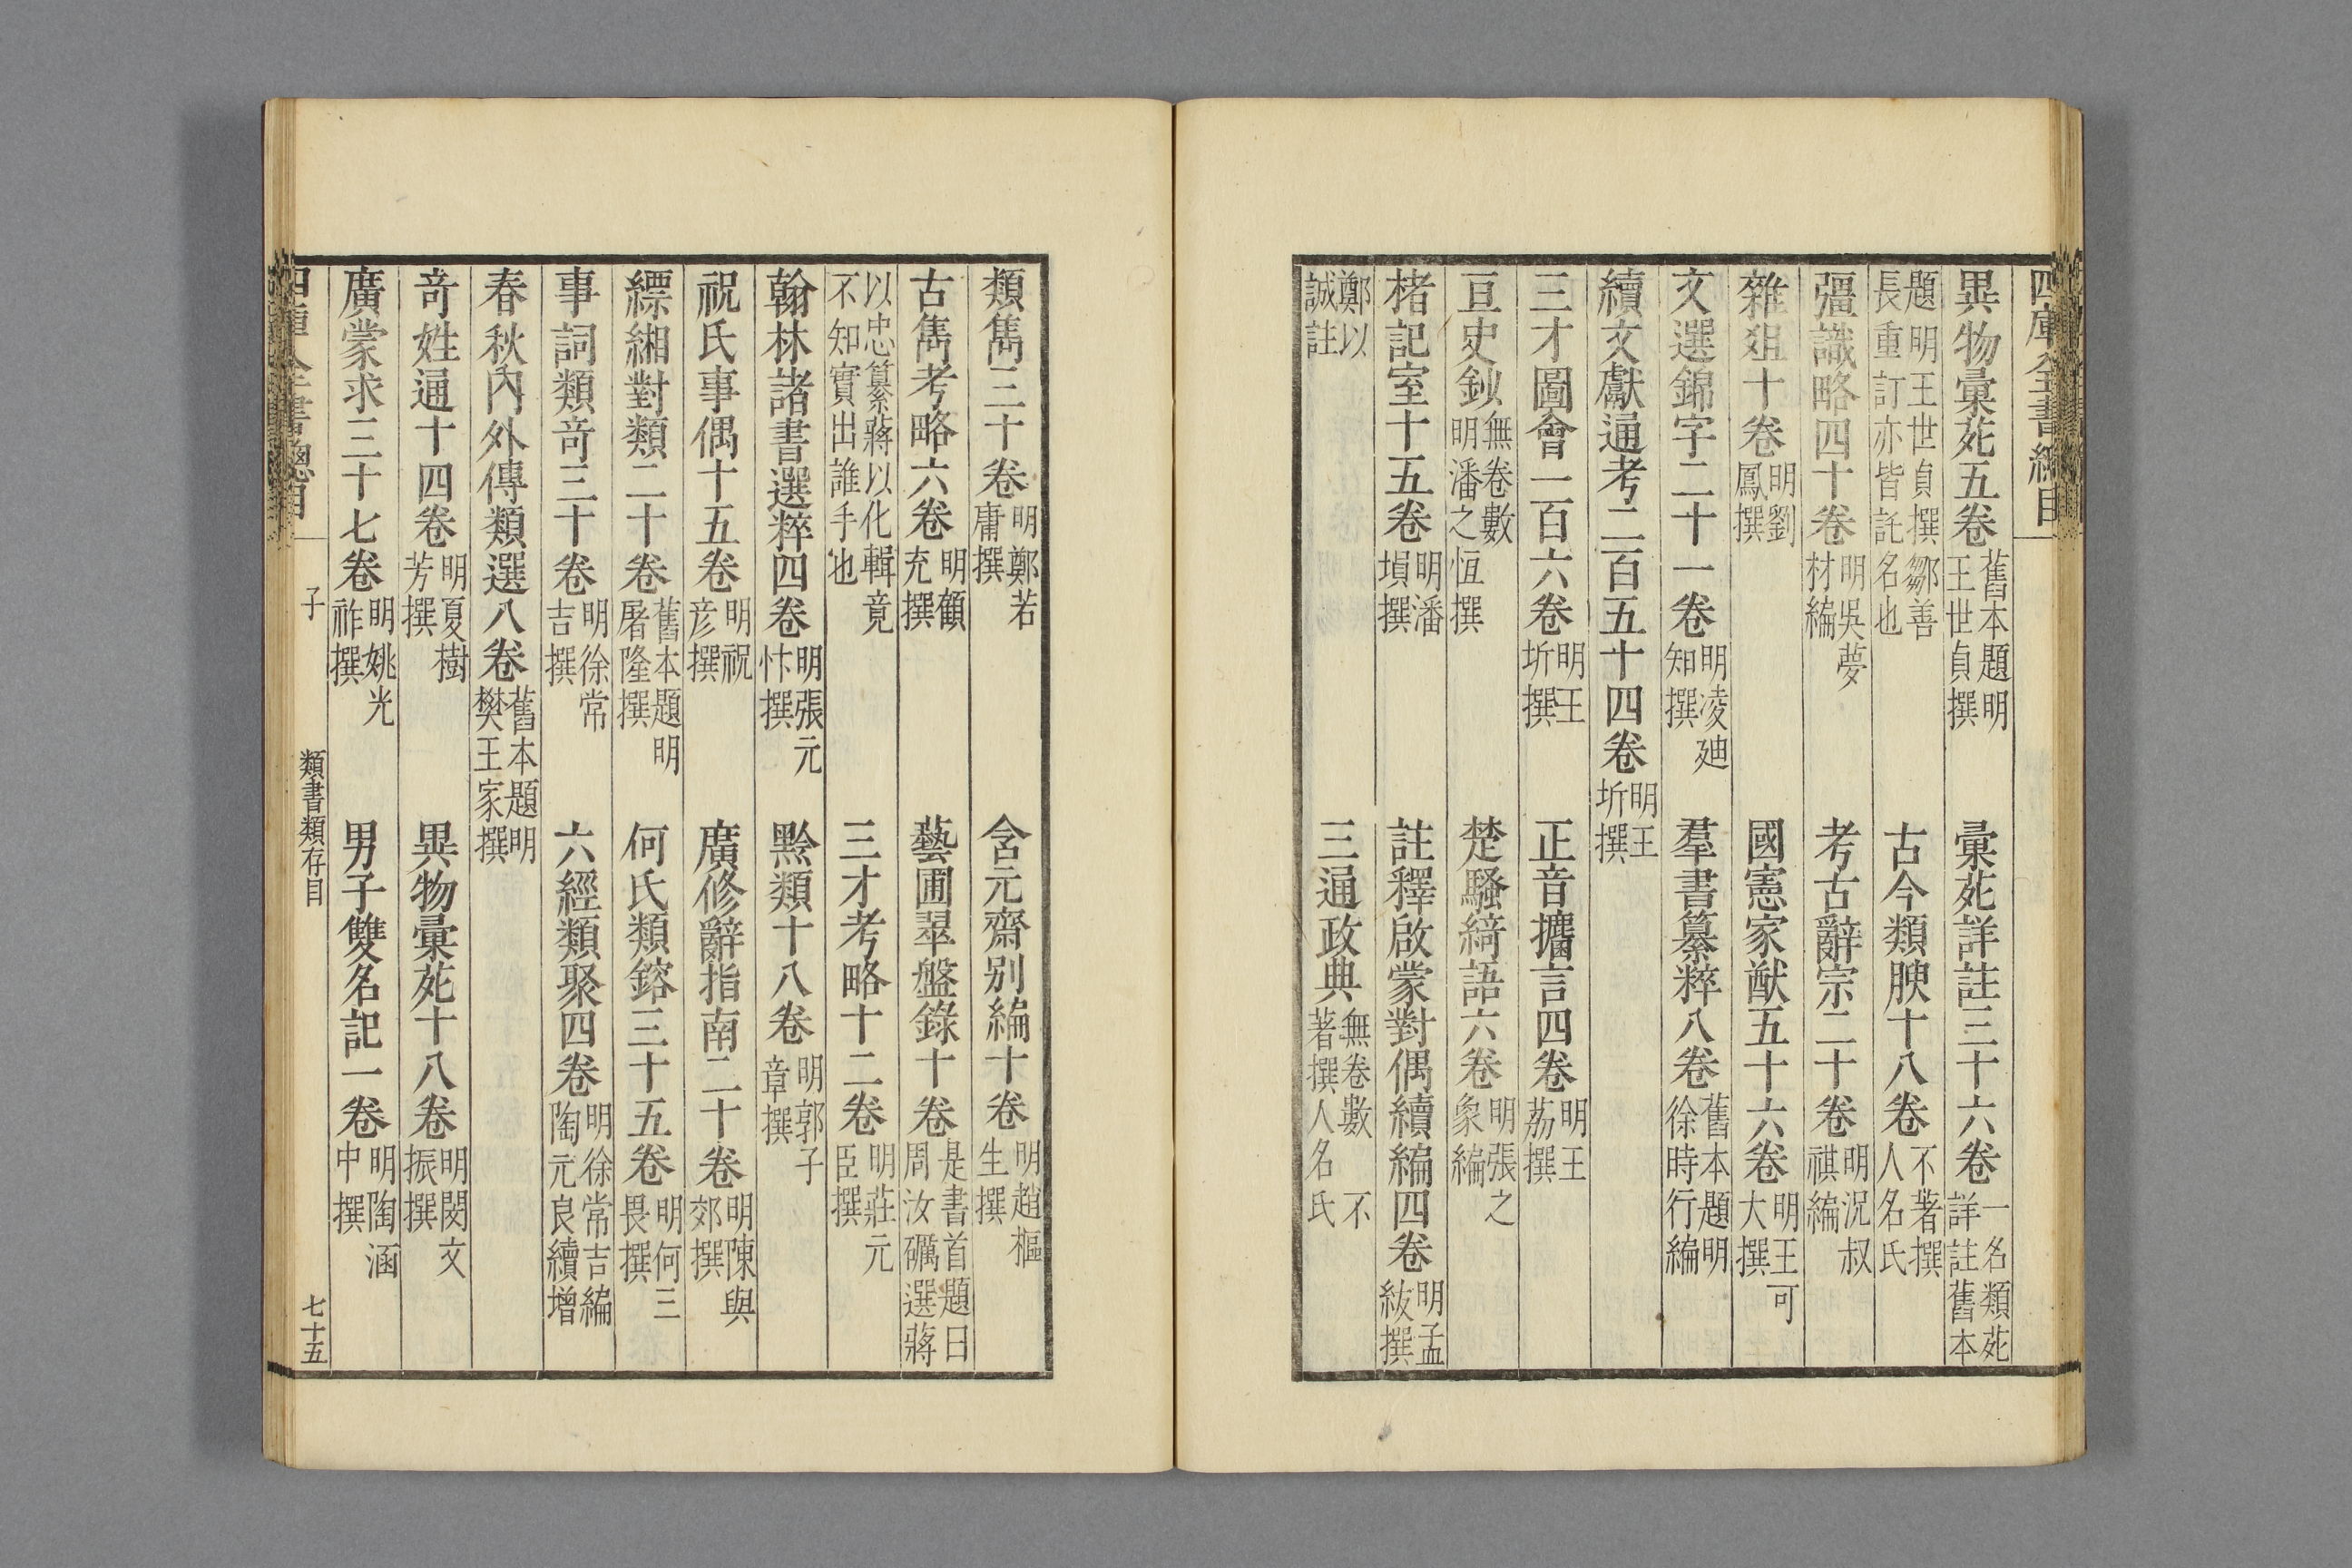 四庫全書總目
異物彙苑五卷 舊本題明王世貞撰 彙苑詳註三十六卷 一名類苑詳註舊本
題明王世貞撰鄒善長重訂亦皆託名也 古今類腴十八卷 不著撰人名氏
彊識略四十卷 明吳夢材編 考古辭宗二十卷 明況叔祺編
雜俎十卷 明劉鳳撰 國憲家猷五十六卷 明王可大撰
文選錦字二十一卷 明凌廸知撰 羣書纂粹八卷 舊本題明徐時行編
續文獻通考二百五十四卷 明王圻撰
三才圖會一百六卷 明王圻撰 正音攟言四卷 明王荔撰
亘史鈔 無卷數明潘之恆撰 楚騷綺語六卷 明張之象編
楮記室十五卷 明潘塤撰 註釋啟蒙對偶續編四卷 明孟紱撰
鄭以誠註 三通政典 無卷數不著撰人名氏
類雋三十卷 明鄭若庸撰 含元齋別編十卷 明趙樞生撰
古雋考略六卷 明顧充撰 藝圃翠盤錄十卷 是書首題曰周汝礪選蔣
以忠纂蔣以化輯竟不知實出誰手也 三才考略十二卷 明莊元臣撰
翰林諸書選粹四卷 明張元忭撰 黔類十八卷 明郭子章撰
祝氏事偶十五卷 明祝彦撰 廣修辭指南二十卷 明陳與郊撰
縹緗對類二十卷 舊本題明屠隆撰 何氏類鎔三十五卷 明何三畏撰
事詞類奇三十卷 明徐常吉撰 六經類聚四卷 明徐常吉編陶元良續增
春秋內外傳類選八卷 舊本題明樊王家撰
奇姓通十四卷 明夏樹芳撰 異物彙苑十八卷 明閔文振撰
廣蒙求三十七卷 明姚光祚撰 男子雙名記一卷 明陶涵中撰
四庫全書總目 子 類書類存目 七十五